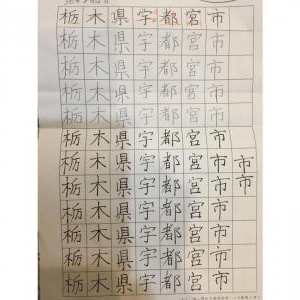 栃木県宇都宮市
栃木県宇都宮市
栃木県宇都宮市
栃木県宇都宮市
栃木県宇都宮市
栃木県宇都宮市
栃木県宇都宮市市
栃木県宇都宮市市
栃木県宇都宮市
栃木県宇都宮市
栃木県宇都宮市
栃木県宇都宮市